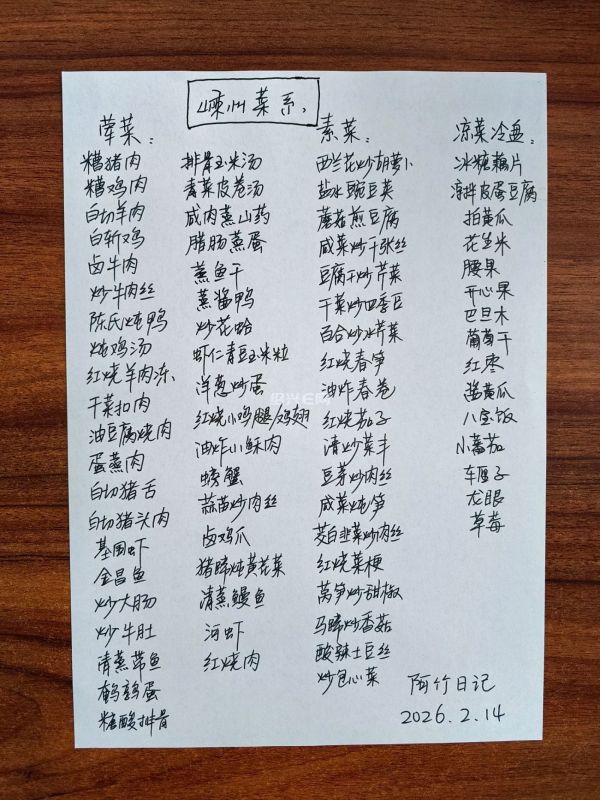 嵊州菜系、
荤菜：
糟猪肉
糟鸡肉
白切羊肉
白斩鸡
卤牛肉
炒牛肉丝
陈氏炖鸭
炖鸡汤
红烧羊肉冻
干菜扣肉
油豆腐烧肉
蛋蒸肉
白切猪舌
白切猪头肉
基围虾
金昌鱼
炒大肠
炒牛肚
清蒸带鱼
鹌鹑蛋
糖酸排骨
排骨玉米汤
青菜皮卷汤
咸肉蒸山药
腊肠蒸蛋
蒸鱼干
蒸酱鸭
炒花蛤
虾仁青豆玉米粒
洋葱炒蛋
红烧小鸡腿/鸡翅
油炸小酥肉
螃蟹
蒜苗炒肉丝
卤鸡爪
猪蹄炖黄花菜
清蒸鳗鱼
河虾
红烧肉
素菜：
西兰花炒胡萝卜
盐水豌豆荚
蘑菇煎豆腐
咸菜炒千张丝
豆腐干炒芹菜
干菜炒四季豆
百合炒水芹菜
红烧春笋
油炸春卷
红烧茄子
清炒菜丰
豆芽炒肉丝
咸菜炖笋
茭白韭菜炒肉丝
红烧菜梗
莴笋炒甜椒
马蹄炒香菇
酸辣土豆丝
炒包心菜
凉菜冷盘：
冰糖藕片
凉拌皮蛋豆腐
拍黄瓜
花生米
腰果
开心果
巴旦木
葡萄干
红枣
酱黄瓜
八宝饭
小蕃茄
车厘子
龙眼
草莓
阿竹日记
2026.2.14